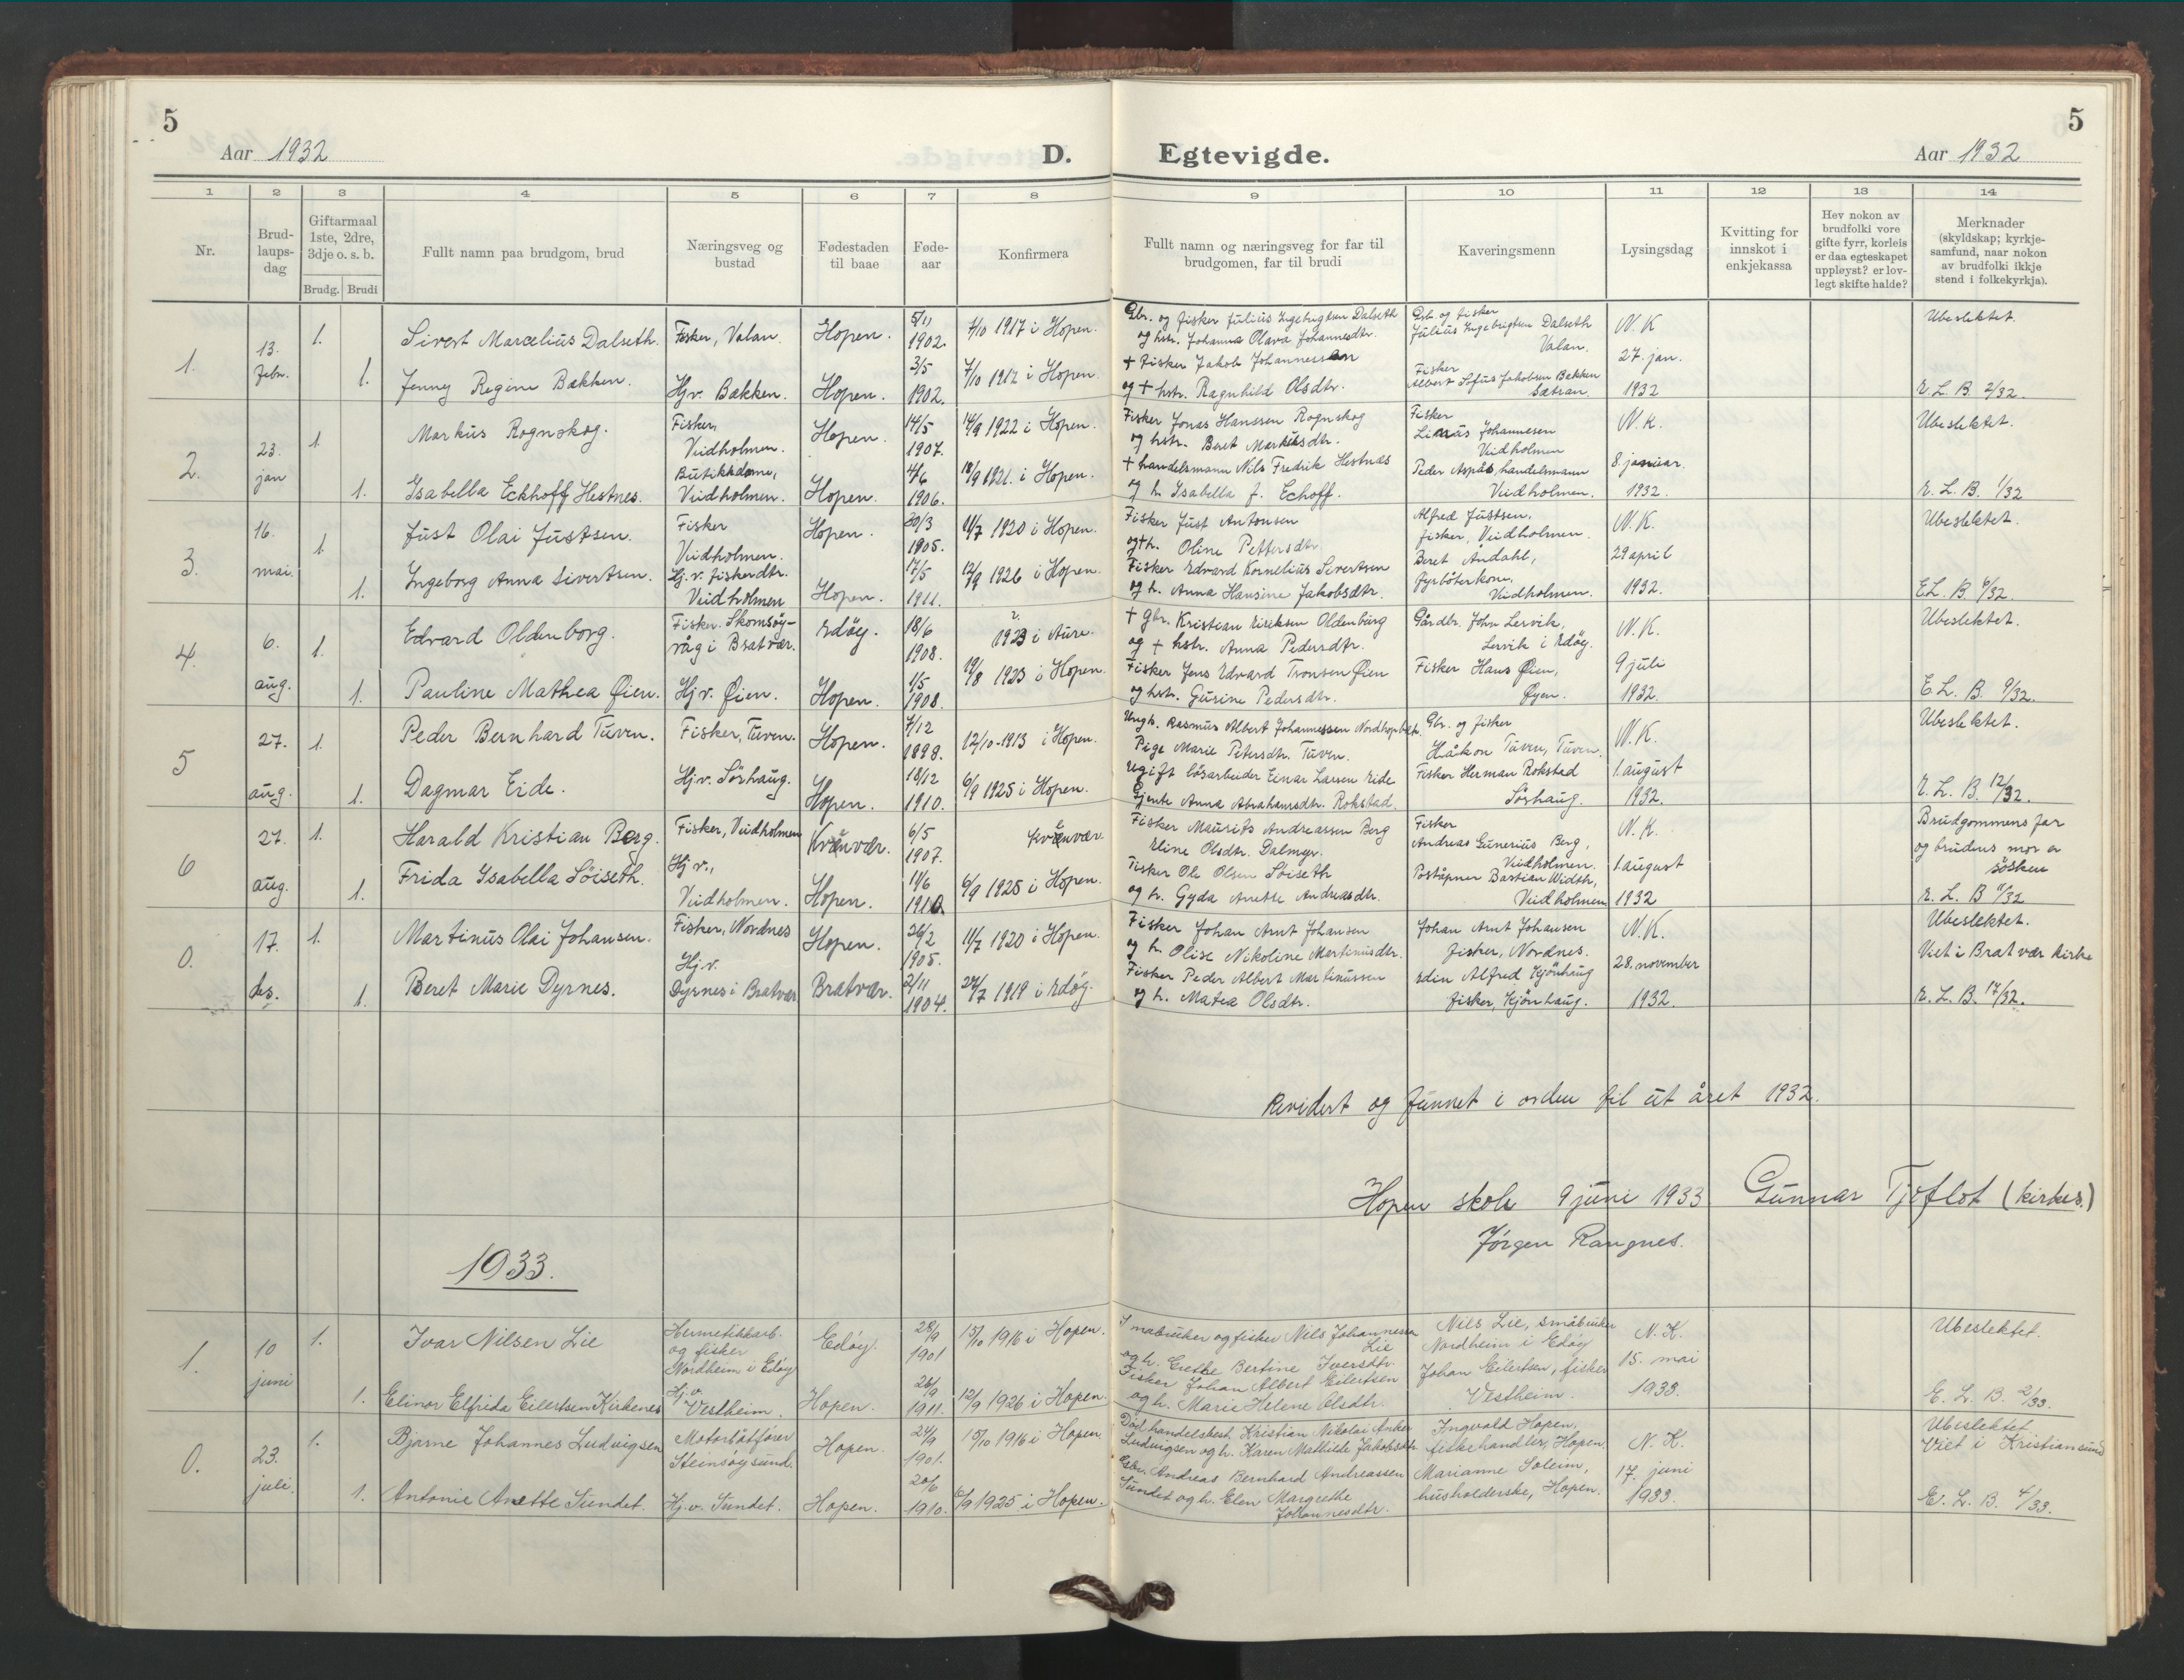 5
5
Aar 1932
D. Egtevigde.
Aar 1932
1 2 3 4 5 6 7 8 9 10 11 12 13 14
Nr.
Brud-
laups-
dag
Giftarmaal
1ste, 2dre,
3dje o. s. b.
Brudg. Brudi
Fullt namn paa brudgom, brud
Næringsveg og
bustad
Fødestaden
til baae
Føde-
aar
Konfirmera
Fullt namn og næringsveg for far til
brudgomen, far til brudi
Kaveringsmenn
Lysingsdag
Kvitting for
innskot i
enkjekassa
Hev nokon av
brudfolki vore
gifte fyrr, korleis
er daa egteskapet
uppløyst? er lov-
legt skifte halde?
Merknader
(skyldskap; kyrkje-
samfund, naar nokon
av brudfolki ikkje
stend i folkekyrkja).
1.
13.
febr.
1.
Sivert Marcelius Dalseth.
Fisker, Valan.
Hopen.
5/11
1902.
7/10 1917 i Hopen.
Gbr. og fisker Julius Ingebrigtsen Dalseth
og hstr. Johanna Olava Johannesdtr.
Gbr. og fisker
Julius Ingebrigtsen Dalseth
Valan.
N. K
27. jan.
1932
Ubeslektet.
1.
Jenny Regine Bakken.
Hjv. Bakken.
Hopen.
3/5
1902.
7/10 1917 i Hopen.
+ Fisker Jakob Johannessen
og + hstr. Ragnhild Olsdtr.
Fisker
Albert Sofus Jakobsen Bakken
Sætran.
E. L. B. 2/32.
2.
23.
jan
1.
Markus Rognskog.
Fisker,
Veidholmen.
Hopen.
14/5
1907.
14/9 1922 i Hopen.
Fisker Jonas Hanssen Rognskog
og hstr. Beret Markusdtr.
Fisker
Linus Johannesen
Veidholmen
N. K.
8. januar.
1932.
Ubeslektet.
1.
Isabella Eckhoff Hestnes.
Butikkdame,
Veidholmen.
Hopen.
4/6
1906.
18/9 1921. i Hopen.
+ handelsmann Nils Fredrik Hestnæs
og h. Isabella f. Echoff.
Peder Aspås, handelsmann
Veidholmen.
E. L. B. 1/32
3.
16.
mai.
1.
Just Olai Justsen.
Fisker
Veidholmen.
Hopen.
30/3
1905.
11/7 1920 i Hopen.
Fisker Just Antonsen
og+h. Oline Pettersdtr
Alfred Justsen,
fisker, Veidholmen.
N. K.
29 april
1932.
Ubeslektet.
1.
Ingeborg Anna Sivertsen.
Hj. v. fiskerdtr.
Veidholmen
Hopen.
17/5
1911.
12/9 1926 i Hopen.
Fisker Edvard Kornelius Sivertsen
og h. Anna Hansine Jakobsdtr.
Beret Andahl,
fyrbøterkone,
Veidholmen.
E.L. B. 6/32.
4.
6.
aug.
1.
Edvard Oldenborg.
Fisker. Skomsøy-
våg i Bratvær.
Edøy.
18/6
1908.
? 1923 i Aure.
+ gbr. Kristian Eriksen Oldenburg
og + hstr. Anna Pedersdtr.
Gårdbr. John Lervik,
Lervik i Edøy.
N. K.
9 juli
1932.
Ubeslektet.
1.
Pauline Mathea Øien.
Hj v. Øien.
Hopen.
1/5
1908.
19/8 1923 i Hopen.
Fisker Jens Edvard Tronsen Øien
og hstr. Gurine Pedersdtr.
Fisker Hans Øien,
Øyen.
E. L. B. 9/32.
5
27.
aug.
1.
Peder Bernhard Tuven.
Fisker, Tuven.
Hopen.
7/12
1898.
12/10-1913 i Hopen.
Ungk. Rasmus Albert Johannessen
Pige Marie Petersdtr. Tuven.
Gbr. og fisker
Håkon Tuven, Tuven.
N. K.
1. august
1932.
Ubeslektet.
1.
Dagmar Eide.
Hj.v. Sørhaug.
Hopen.
18/12
1910.
6/9 1925 i Hopen.
Ugift løsarbeider Einar Larsen Eide
Gjente Anna Abrahamsdtr. Rokstad.
Fisker Herman Rokstad
Sørhaug.
E. L. B. 12/32.
6
27.
aug.
1.
Harald Kristian Berg.
Fisker, Veidholmen
Kvenvær.
6/5
1907.
Kvenvær.
Fisker Maurits Andreassen Berg
Eline Olsdtr. Dalmyr.
Fisker
Andreas Gunerius Berg,
Veidholmen.
N. K.
1 august
1932
Brudgommens far
og brudens mor er
søsken
1.
Frida Isabella Søiseth.
Hj v.,
Veidholmen.
Hopen.
11/6
1910.
6/9 1925 i Hopen.
Fisker Ole Olsen Søiseth
og h. Gyda Anette Andreasdtr.
Poståpner Bastian Width,
Veidholmen
E. L. B 9/32
0.
17.
des.
1.
Martinus Olai Johansen.
Fisker, Nordnes
Hopen.
26/2
1905.
11/7 1920 i Hopen.
Fisker Johan Arnt Johansen
og h. Olise Nikoline Martinusdtr.
Johan Arnt Johansen
fisker, Nordnes.
N.K.
28. november
1932.
Ubeslektet.
Viet i Bratvær kirke
1.
Beret Marie Dyrnes.
Hj.v.
Dyrnes i Bratvær
Bratvær.
2/11
1904.
27/7 1919 i Edøy.
Fisker Peder Albert Martinussen
og h. Matea Olsdtr.
Edin Alfred Kjønhaug
fisker, Kjønhaug.
E. L. B. 17/32.
Revidert og funnet i orden til ut året 1932.
Hopen skole 9 juni 1933 Gunnar Tjoflot (kirkes.)
Jørgen Rangnes.
1933.
1.
10
juni
1.
Ivar Nilsen Lie
Hermetikkarb.
og fisker
Nordheim i Edøy
Edøy.
28/9
1901
15/10 1916 i Hopen.
Småbruker og fisker Nils Johannessen
Lie
og h. Grethe Bertine Iversdtr.
Nils Lie, småbruker
Nordheim i Edøy
N. K.
15. mai
1933.
Ubeslektet.
1.
Elinor Elfrida Eilertsen Kirkenes
Hj.v.
Vestheim.
Hopen.
26/9
1911.
12/9 1926 i Hopen.
Fisker Johan Albert Eilertsen
og h. Marie Helene Olsdtr.
Johan Eilertsen, fisker
Vestheim.
E. L. B. 2/33.
0.
23.
juli.
1.
Bjarne Johannes Ludvigsen
Motorbåtfører
Steinsøysund.
Hopen.
24/9
1901.
15/10 1916 i Hopen
Død handelsbest. Kristian Nikolai Anker
Ludvigsen og h. Karen Mathilde Jakobsdtr.
Ingvald Hopen,
fiskehandler, Hopen.
N. K.
17. juni
1933.
Ubeslektet
Viet i Kristiansund
1.
Antonie Anette Sundet.
Hj.v. Sundet.
Hopen.
20/6
1910.
6/9 1925 i Hopen.
Gbr. Andreas Bernhard Andreassen
Sundet og h. Elen Margrethe
Johannesdtr.
Marianne Soleim,
husholderske, Hopen.
E. L. B. 4/33.